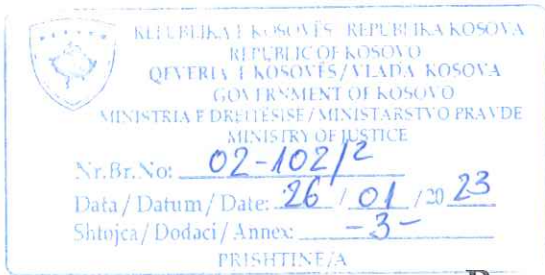 REPUBLIKA E KOSOVËS - REPUBLIKA KOSOVA
REPUBLIC OF KOSOVO
QEVERIA E KOSOVËS / VLADA KOSOVA
GOVERNMENT OF KOSOVO
MINISTRIA E DREJTËSISË / MINISTARSTVO PRAVDE
MINISTRY OF JUSTICE
Nr.Br.No: 02-102/2
Data / Datum / Date: 26 / 01 / 20 23
Shtojca / Dodaci / Annex: -3-
PRISHTINË/A